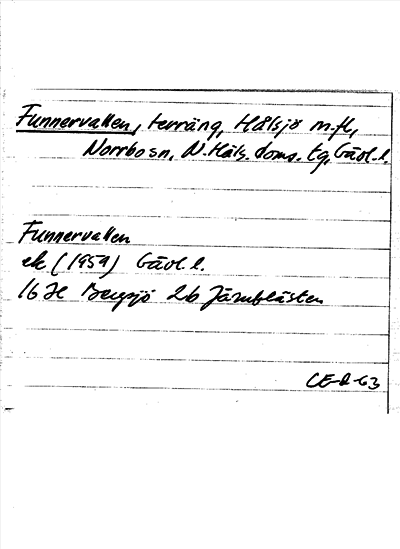 Funnervallen, terräng, Hålsjö m.fl,
Norrbo sn, N.Häls. doms. tg, Gävl.l.
Funnervallen
ek (1959) Gävl.l.
16 H Bergsjö 2b Järnblästen
CE-R-63